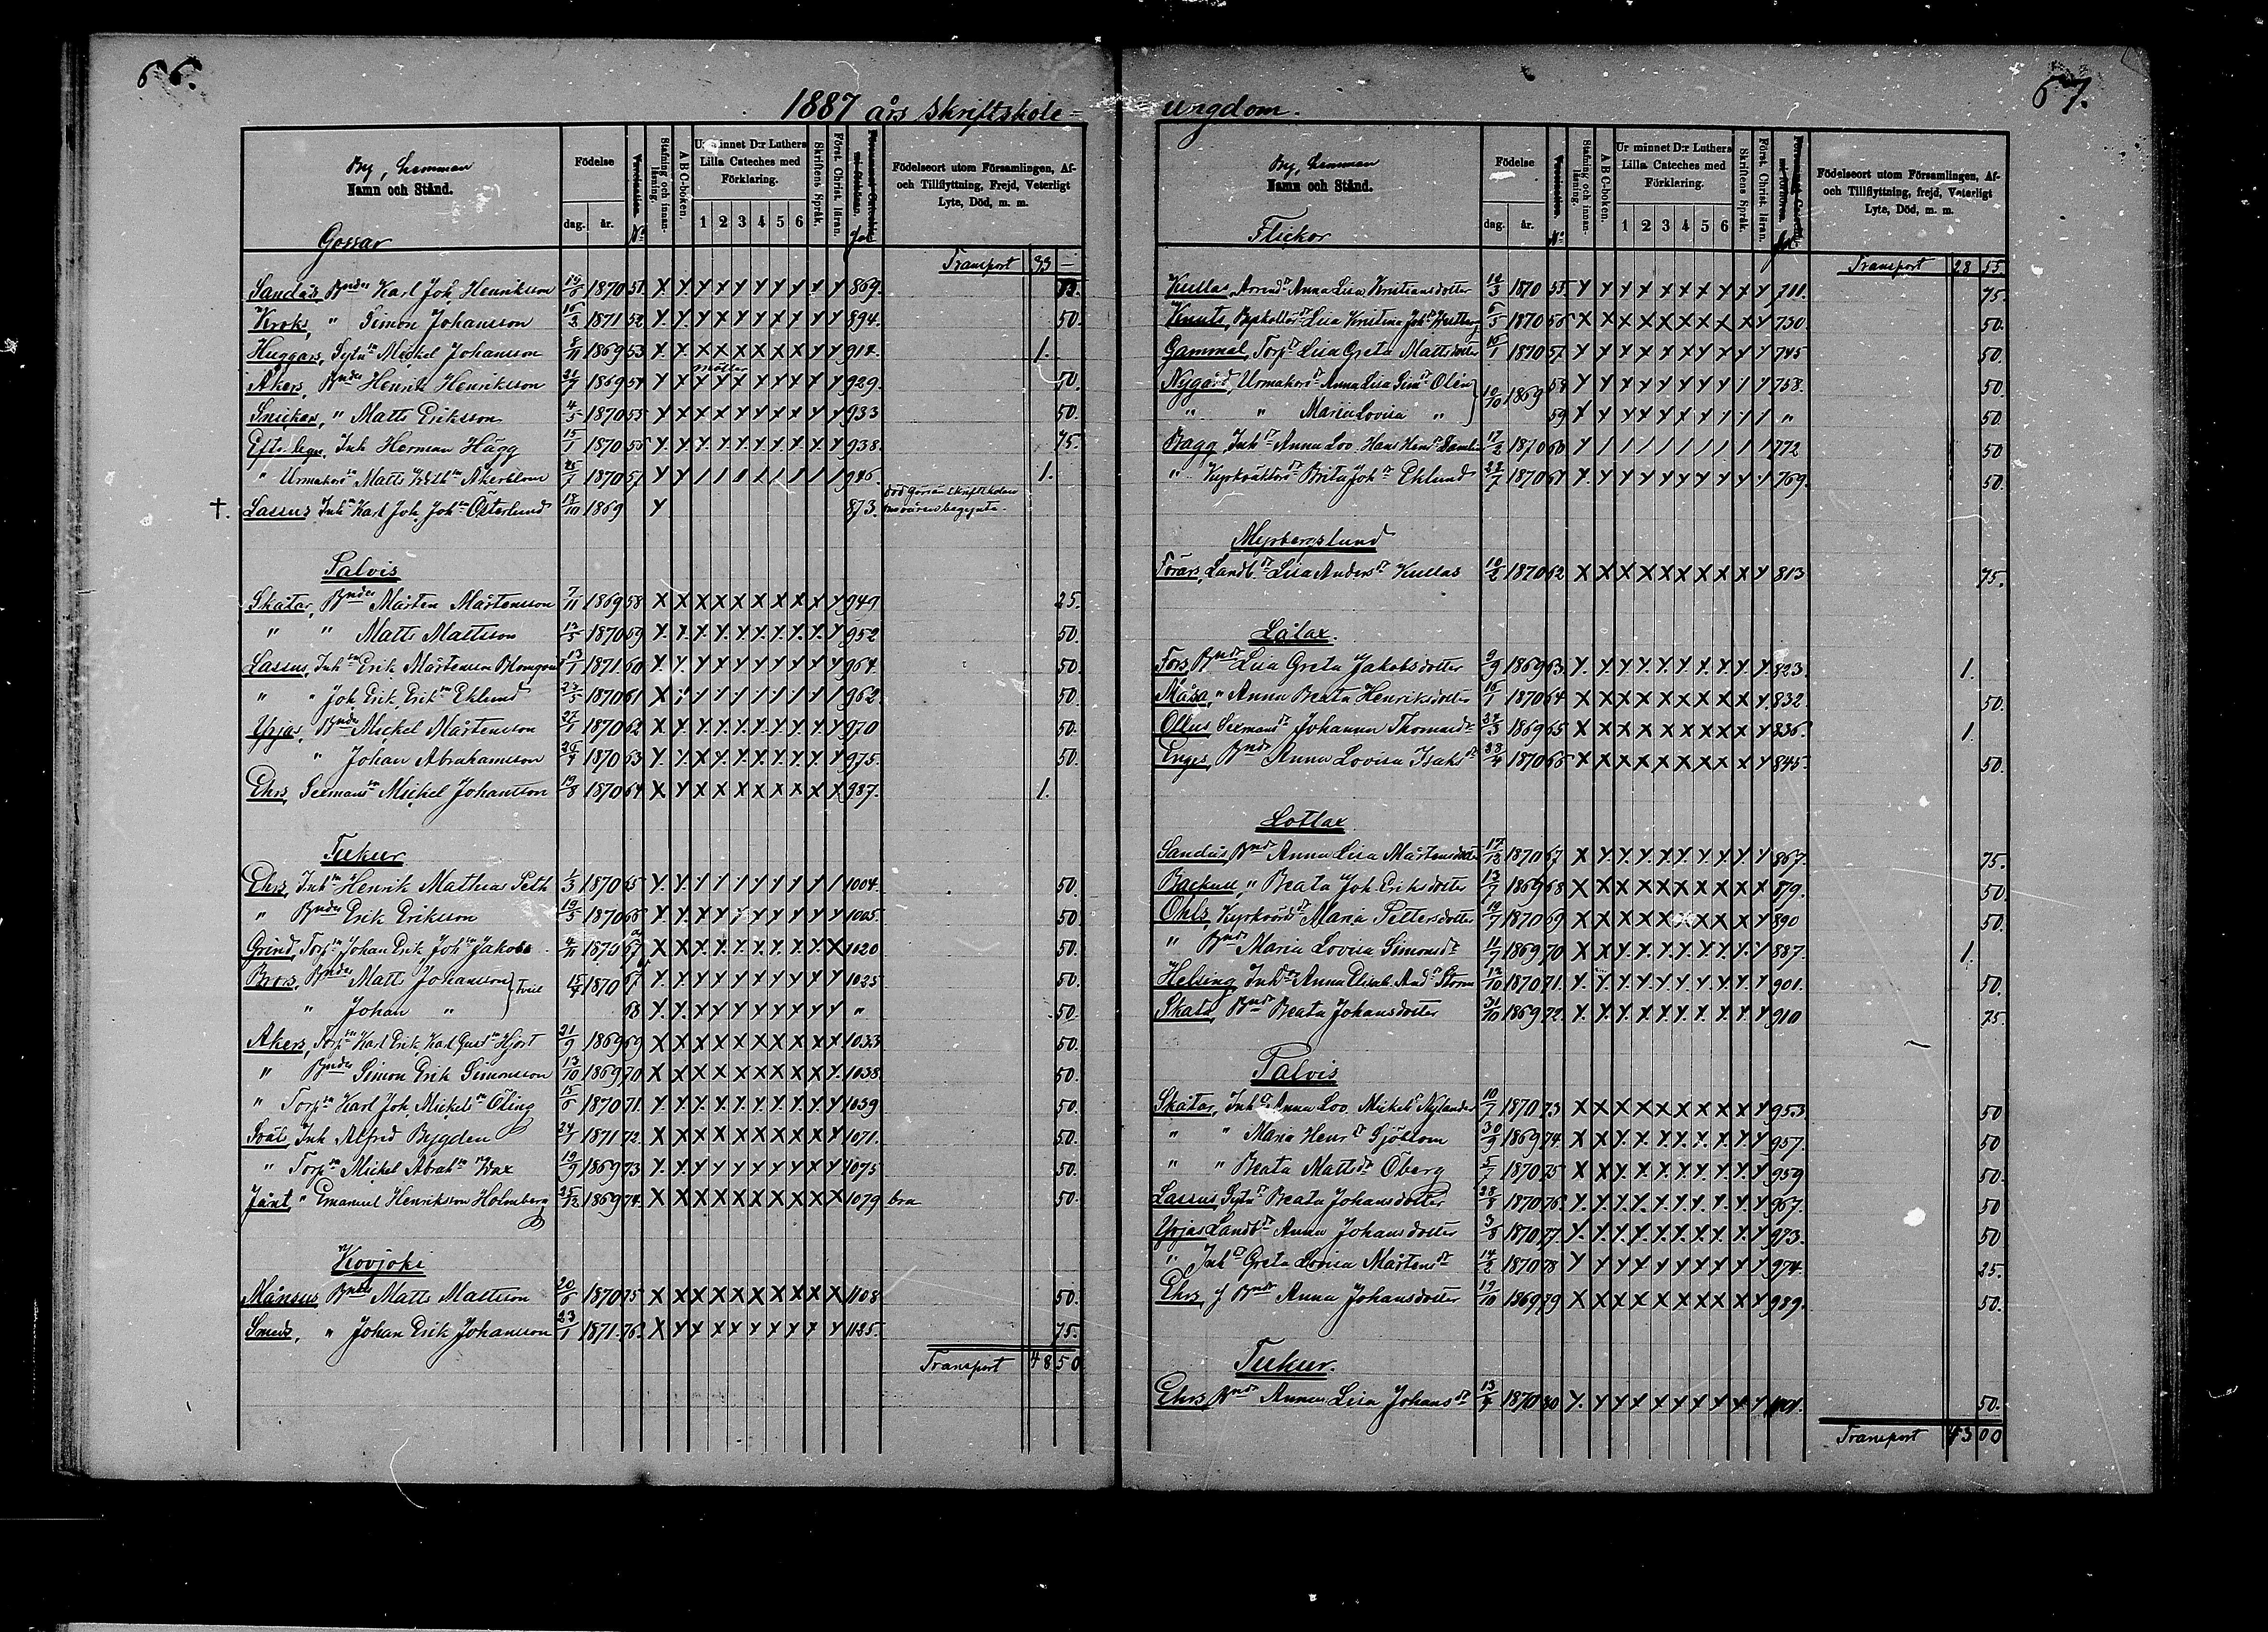 66.
1887 års Skriftskole=
By, Hemman
Namn och Stånd.
Gossar
Födelse
dag. år.
Stafning och innanläsning.
A B C-boken.
Ur minnet D:r Luthers Lilla Cateches med Förklaring.
1 2 3 4 5 6
Skriftens Språk.
Först. Christ. läran.
Födelseort utom Församlingen, Af- och Tillflyttning, Frejd, Veterligt Lyte, Död, m. m.
Transport 33 —
Sandås, Bndes Karl Joh. Henriksson 1870 51 869.
Kroks, " Simon Johansson 16/3 1871 52 894. 50.
Huggars, Sytn Mickel Johansson 1869 53 914. 1.
Akers, Bndes Henrik Henriksson 21/9 1869 54 929. 50.
Snickars, " Matts Eriksson 4/5 1870 55 933 50.
Inh Herman Hägg 15/1 1870 56 938. 75.
" Urmakars Matts Åkerblom 1870 57 946. 1.
†. Lassus Inh Karl Joh. Joh Österlund 18/10 1869 873. död
Palvis
Skåtar, Bndes Mårten Mårtensson 7/11 1869 58 949 25.
" " Matts Mattsson 1870 59 952 50.
Lassus, Inh Erik Mårtensson Blomqvist 13/1 1871 60 964. 50.
" " Joh. Erik Erik Eklund 23/5 1870 61 962 50.
Yrjas, Bndes Mickel Mårtensson 27/1 1870 62 970 50.
" Johan Abrahamsson 26/4 1870 63 975. 50.
Ehrs, Sexmans Mickel Johansson 19/8 1870 64 987. 1.
Teekeer
Ehrs, Inh Henrik Mathias Peth 1/3 1870 65 1004. 50.
" Bndes Erik Eriksson 19/5 1870 66 1005. 50
Grind, Torp Johan Erik Joh Jakobs 4/11 1870 67 1020 50.
Brors, Bndes Matts Johansson } Tvill 15/4 1870 67 1025 50.
" Johan " 68 " 50.
Akers, Torp Karl Erik, Karl Gust Hjort 21/9 1869 69 1033 50.
" Bndes Simon Erik Simonsson 13/10 1869 70 1038 50.
" Torp Karl Joh. Mickels Öling 15/6 1870 71. 1039 50.
Svål, Inh Alfred Bygden 24/1 1871 72. 1071. 50.
" Torp Mickel Abrah Wax 19/9 1869 73 1075 50.
Jånt " Emanuel Henriksson Holmberg 25/12 1869 74. 1079 bra 50.
Kovjoki
Månsus Bndes Matts Mattsson 20/6 1870 75 1108 50.
Smeds, " Johan Erik Johansson 23/1 1871. 76. 1125. 75.
Transport 48 50
67.
ungdom.
By, Hemman
Namn och Stånd.
Flickor
Födelse
dag. år.
Stafning och innanläsning.
A B C-boken.
Ur minnet D:r Luthers Lilla Cateches med Förklaring.
1 2 3 4 5 6
Skriftens Språk.
Först. Christ. läran.
Födelseort utom Församlingen, Af- och Tillflyttning, frejd, Veterligt Lyte, Död, m. m.
Transport 28 55.
Kullas, Arrend Anna Lisa Kristiansdotter 1870 55. 711. 75.
Knuts, Lisa Kristina Joh 1870 56 730. 50.
Gammal, Torp Lisa Greta Mattsdotter 10/1 1870 57. 745 50.
Nygård, Urmakars Anna Lisa Sim Olin } 10/10 1869 58 758. 50
" " Maria Lovisa " 59 " 50.
Bagg, Inh Anna Lov. Hans Hend 17/2 1870 60 772 50
" Kyrkväktars Brita Joh Eklund 22/7 1870 61 769. 50.
Myrbergslund
Förars, Landb Lisa Anders Kullas 10/2 1870 62 813 75.
Låtax.
Fors, Bnd Lisa Greta Jakobsdotter 9/9 1869 63. 823. 1.
Måsa, " Anna Beata Henriksdotter 16/1 1870 64 832. 50.
Ollus Sexmans Johanna Thomasd 1869 65 836. 1.
Enges, Bnd Anna Lovisa Isaks 1870 66 845. 50.
Lotlax
Sandås, Bnd Anna Lisa Mårtensdotter 17/12 1870 67 867. 75.
Backus, " Beata Joh. Eriksdotter 13/7 1869 68 879. 50.
Ohls, Kyrkvärds Maria Pettersdotter 19/7 1870 69 890 50.
" Bnd Maria Lovisa Simonsd 11/9 1869 70 887. 1.
Helsing, Inh Anna Elisab. And Storm 12/10 1870 71. 901. 50.
Skata, Bnd Beata Johansdotter 31/10 1869 72. 910 75.
Palvis
Skåtar, Inh Anna Lov. Mickels Nylander 10/7 1870 73 953 50
" " Maria Henr Sjöblom 30/9 1869 74. 957. 50
" " Beata Mattsd Öberg 5/7 1870 75 959 50.
Lassus, Sytn Beata Johansdotter 28/8 1870 76. 967. 50
Yrjas Landb Anna Johansdotter 3/8 1870 77. 973. 50
" Inh Greta Lovisa Mårtens 14/2 1870 78 974. 25.
Ehrs, f Bnd Anna Johansdotter 19/10 1869 79 989. 50.
Teekeer.
Ehrs, Bnd Anna Lisa Johans 13/4 1870 80 1001. 50.
Transport 43 00